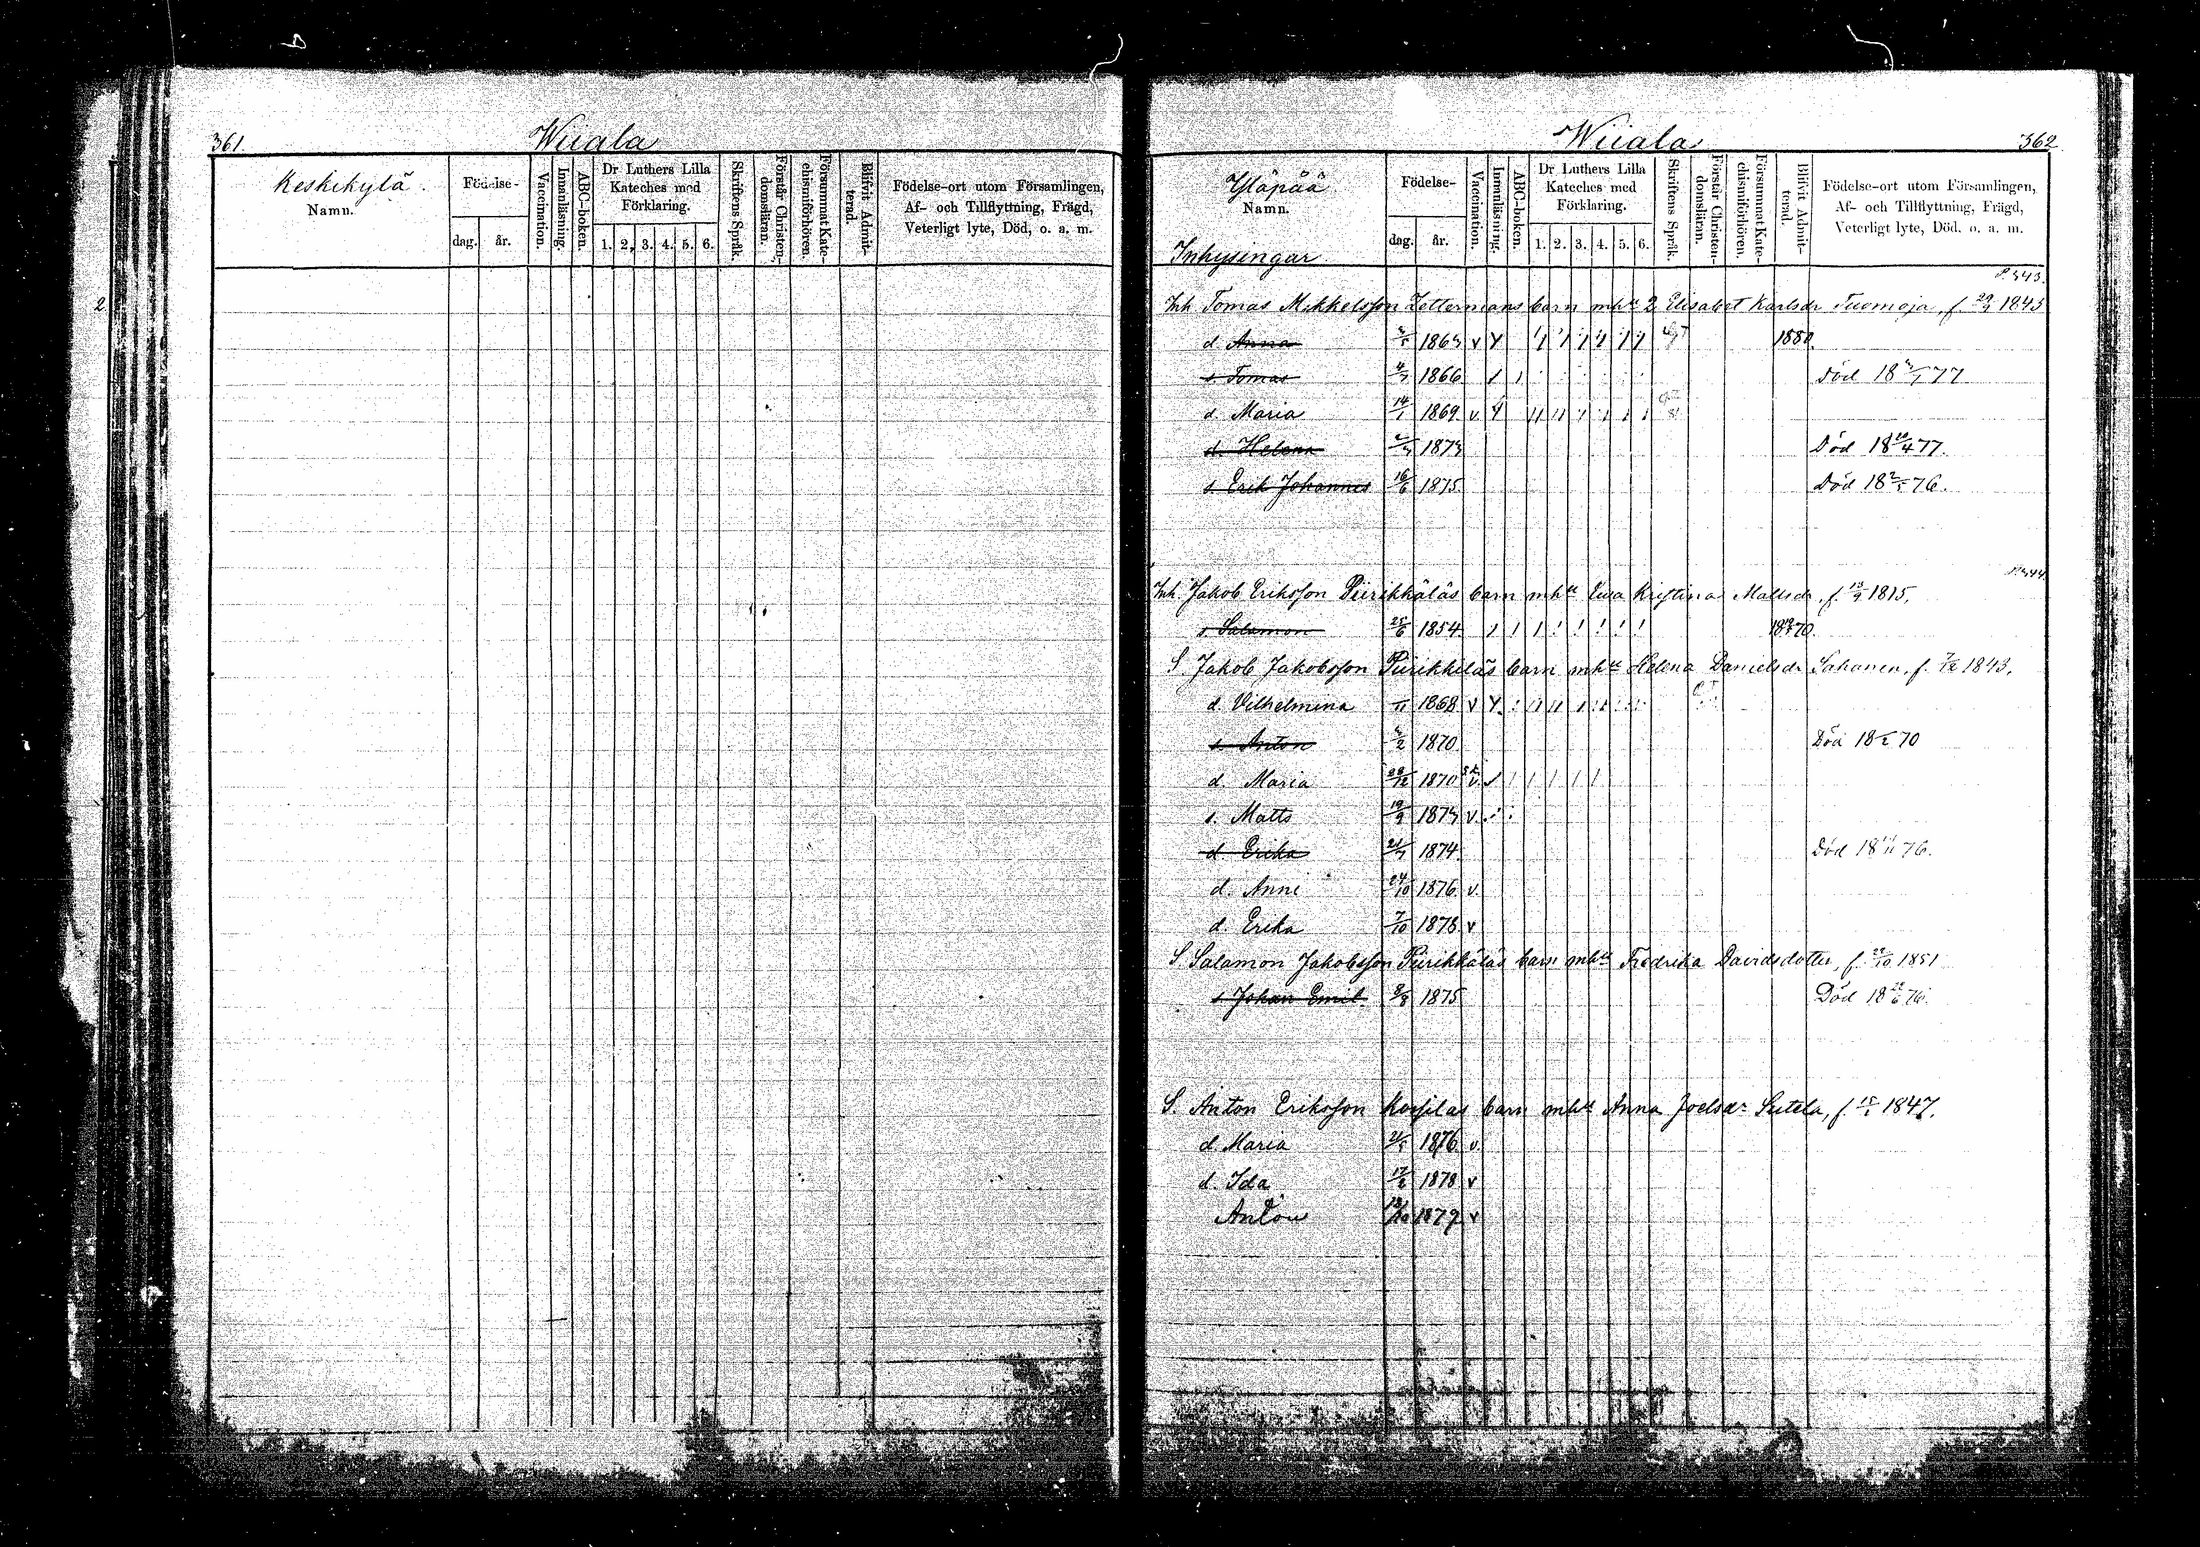 361.
Wiiala
Keskikylä.
Namn.
Födelse-
dag. år.
Vaccination.
Innanläsning.
ABC-boken.
Dr Luthers Lilla
Kateches med
Förklaring.
1. 2. 3. 4. 5. 6.
Skriftens Språk.
Förstår Christen-
domsläran.
Försummat Kate-
chismiförhören.
Blifvit Admit-
terad.
Födelse-ort utom Församlingen,
Af- och Tillflyttning, Frägd,
Veterligt lyte, Död, o. a. m.
2
Wiiala
362
Yläpää
Namn.
Inhysingar
Födelse-
dag. år.
Vaccination.
Innanläsning.
ABC-boken.
Dr Luthers Lilla
Kateches med
Förklaring.
1. 2. 3. 4. 5. 6.
Skriftens Språk.
Förstår Christen-
domsläran.
Försummat Kate-
chismiförhören.
Blifvit Admit-
terad.
Födelse-ort utom Församlingen,
Af- och Tillflyttning, Frägd,
Veterligt lyte, Död. o. a. m.
P. 343.
Inh. Tomas Mikkelsson Zettermans barn m hu 2 Elisabet Karlsdr Tuomoja, f. 1843
d. Anna 1863 v 1880.
s. Tomas 1866 Död 18 77
d. Maria 14/1 1869 v
d. Helena 1873 Död 18 77.
s. Erik Johannes 16/6 1875. Död 18 76.
P. 344
Inh. Jakob Eriksson Piirikkäläs barn m hu Ewa Kristina Mattsdr, f. 1815.
s. Salamon 25/6 1854 1870.
S. Jakob Jakobsson Piirikkiläs barn m hu Helena Danielsdr Sahanen, f. 1843.
d. Vilhelmina 1868 v
s. Anton 1870. Död 18 70
d. Maria 28/12 1870 v.
s. Matts 19/9 1873 v.
d. Erika 1874. Död 18 76.
d. Anni 24/10 1876 v.
d. Erika 7/10 1878 v
S. Salamon Jakobsson Piirikkäläs barn m hu Fredrika Davidsdotter, f. 1851
s Johan Emil 8/8 1875 Död 18 76.
S. Anton Eriksson Korsilas barn m hu Anna Joelsdr Sutela, f. 1847.
d. Maria 1876 v.
d. Ida 1878 v
Anton 1879 v